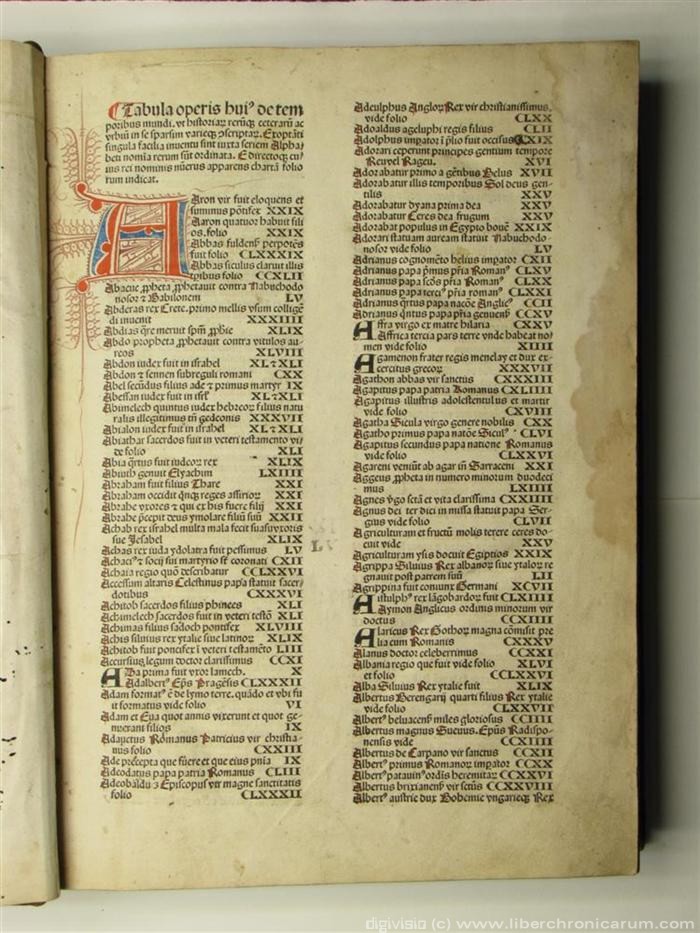 Tabula operis huiꝰ de tem
poribus mundi. vt historiaꝝ rerūqꝫ ceteraꝝ ac
vrbiū in se sparsim varieqꝫ ꝯscriptaꝝ. Exoptāti
singula facilia inuentu sint iuxta seriem Alpha
beti nomīa rerum sūt ordinata. E directoqꝫ cu
ius rei nominis nūerus apparens chartā folio
rum indicat.
Aaron vir fuit eloquens et
summus pōtifex XXIX
Aaron quatuor habuit fili
os. folio XXIX
Abbas fuldensꝭ
fuit folio CLXXXIX
Abbas siculus claruit illis
tꝑibus folio CCXLII
Abacuc ꝓpheta ꝓphetauit contra Nabuchodo
nosor ⁊ Babilonem LV
Abderas rex Crete. primo mellis vsum colligē
di inuenit XXXIIII
Abdias qͥre meruit spm̄ ꝓphie XLIX
Abdo propheta ꝓphetauit contra vitulos au
reos XLVIII
Abdon iudex fuit in israhel XL ⁊ XLI
Abdon ⁊ sennen subreguli romani CXX
Abel secūdus filius ade ⁊ primus martyr IX
Abessan iudex fuit in isrl̄ XL ⁊ XLI
Abimelech quintus iudex hebreoꝝ filius natu
ralis illegitimus tn̄ gedeonis XXXVII
Abialon iudex fuit in israhel XL ⁊ XLI
Abiathar sacerdos fuit in veteri testamento vi
de folio XLI
Abia qͣrtus fuit iudeoꝝ rex XLIX
Abiuth genuit Elyachim LXIIII
Abraham fuit filius Thare XXI
Abraham occidit qͥnqꝫ reges assirioꝝ XXI
Abrahe vxores ⁊ qui ex his fuere filij XXI
Abrahe p̄cepit deus ymolare filiū suū XXII
Achab rex israhel multa mala fecit suasuvxoris
sue Jesabel XLIX
Achas rex iuda ydolatra fuit pessimus LV
Achaciꝰ ⁊ socij sui martyrio st̄ coronati CXII
Achaia regio quō describatur CCLXXVI
Accessum altaris Celestinus papa statuit sacer
dotibus CXXXVI
Achitob sacerdos filius phinees XLI
Achimelech sacerdos fuit in veteri testō XLI
Achimas filius sadoch pontifex XLVIII
Achis siluius rex ytalie siue latinoꝝ XLIX
Achitob fuit poncifex ī veteri testamēto LIII
Accursius legum doctor clarissimus CCXI
Ada prima fuit vxor lamech. X
Adalbertꝰ Ep̄s Pragēsis CLXXXII
Adam formatꝰ ē de lymo terre. quādo et vbi fu
it formatus vide folio VI
Adam et Eua quot annis vixerunt et quot ge-
nuerant filios IX
Adauctus Romanus Patricius vir christia-
nus folio CXXIII
Ade p̄cepta que fuere et que eius pnīa IX
Adeodatus papa patria Romanus CLIII
Adeobaldꝰ Episcopus vir magne sanctitatis
folio CLXXXII
Adeulphus Angloꝝ Rex vir christianissimus.
vide folio CLXX
Adoaldus agelulphi regis filius CLII
Adolphus impator ī p̄lio fuit occisus
Adorari ceperunt principes gentium tempore
Reuvel Rageu. XVI
Adorabatur primo a gētibus Belus XVII
Adorabatur illis temporibus Sol deus gen-
tilis XXV
Adorabatur dyana prima dea XXV
Adorabatur Ceres dea frugum XXV
Adorabat populus in Egypto bouē XXIX
Adorari statuam auream statuit Nabuchodo-
nosor vide folio LV
Adrianus cognomēto helius impator CXII
Adrianus papa pͥmus pr̄ia Romanꝰ CLXV
Adrianus papa scd̄s pr̄ia Romanꝰ CLXX
Adrianus papa terciꝰ pr̄ia roman CLXXI
Adrianus qͣrtus papa natōe Anglicꝰ CCII
Adrianus qͥntus papa pr̄ia genuensꝭ CCXV
Affra virgo ex matre hilaria CXX
Affrica tercia pars terre vnde habeat no
men vide folio XIIII
Agamenon frater regis menelay et dux ex-
ercitus grecoꝝ XXXVII
Agathon abbas vir sanctus CXXXII
Agapitus papa patria Romanus CXLIIII
Agapitus illustris adolescentulus et martir
vide folio CXVIII
Agatha Sicula virgo genere nobilis CXX
Agatho primus papa natōe Siculꝰ CLVI
Agapitus secundus papa natione Romanus
vide folio CLXXVI
Agareni veniūt ab agar siue Sarraceni XXI
Aggeus ꝓpheta in numero minorum duodeci
mus LXIIII
Agnes ꝟgo sctā et vita clarissima CXXIIII
Agnus dei ter dici in missa statuit papa Ser-
gius vide folio CLVII
Agriculturam et fructū molis terere ceres do-
cuit vide XXV
Agriculturam ysis docuit Egiptios XXIX
Agrippa Siluius Rex albanoꝝ siue ytaloꝝ re
gnauit post patrem suū LII
Agrippina fuit coniunx Germani XCVII
Aistulphꝰ rex lāgobardoꝝ fuit CLXIIII
Aymon Anglicus ordinis minorum vir
doctus CCXIIII
Alaricus Rex Gothoꝝ magna cōmisit pre
lia cum Romanis CXXXV
Alanus doctor celeberrimus CCXI
Albania regio que fuit vide folio XLVI
et folio CCLXXVI
Alba Siluius Rex ytalie fuit XLIX
Albertus Berengarij quarti filius Rex ytalie
vide folio CLXXVII
Albertꝰ beluacensꝭ miles gloriosus CCIIII
Albertus magnus Sueuus. Ep̄us Radispo-
nensis vide CCXIII
Albertus de Carpano vir sanctus CCXII
Albertꝰ primus Romanoꝝ impator CCXX
Albertꝰ patauinꝰ ordīs heremitaꝝ CCXXVI
Albertus brixiensꝭ vir sctūs CCXXVIII
Albertꝰ austrie dux Bohemie vngarieqꝫ Rex
digivisio (c) www.liberchronicarum.com